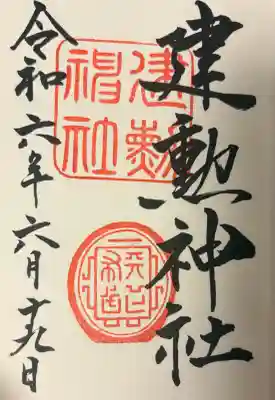 建勲神社
建勲
神社
令和六年六月十九日